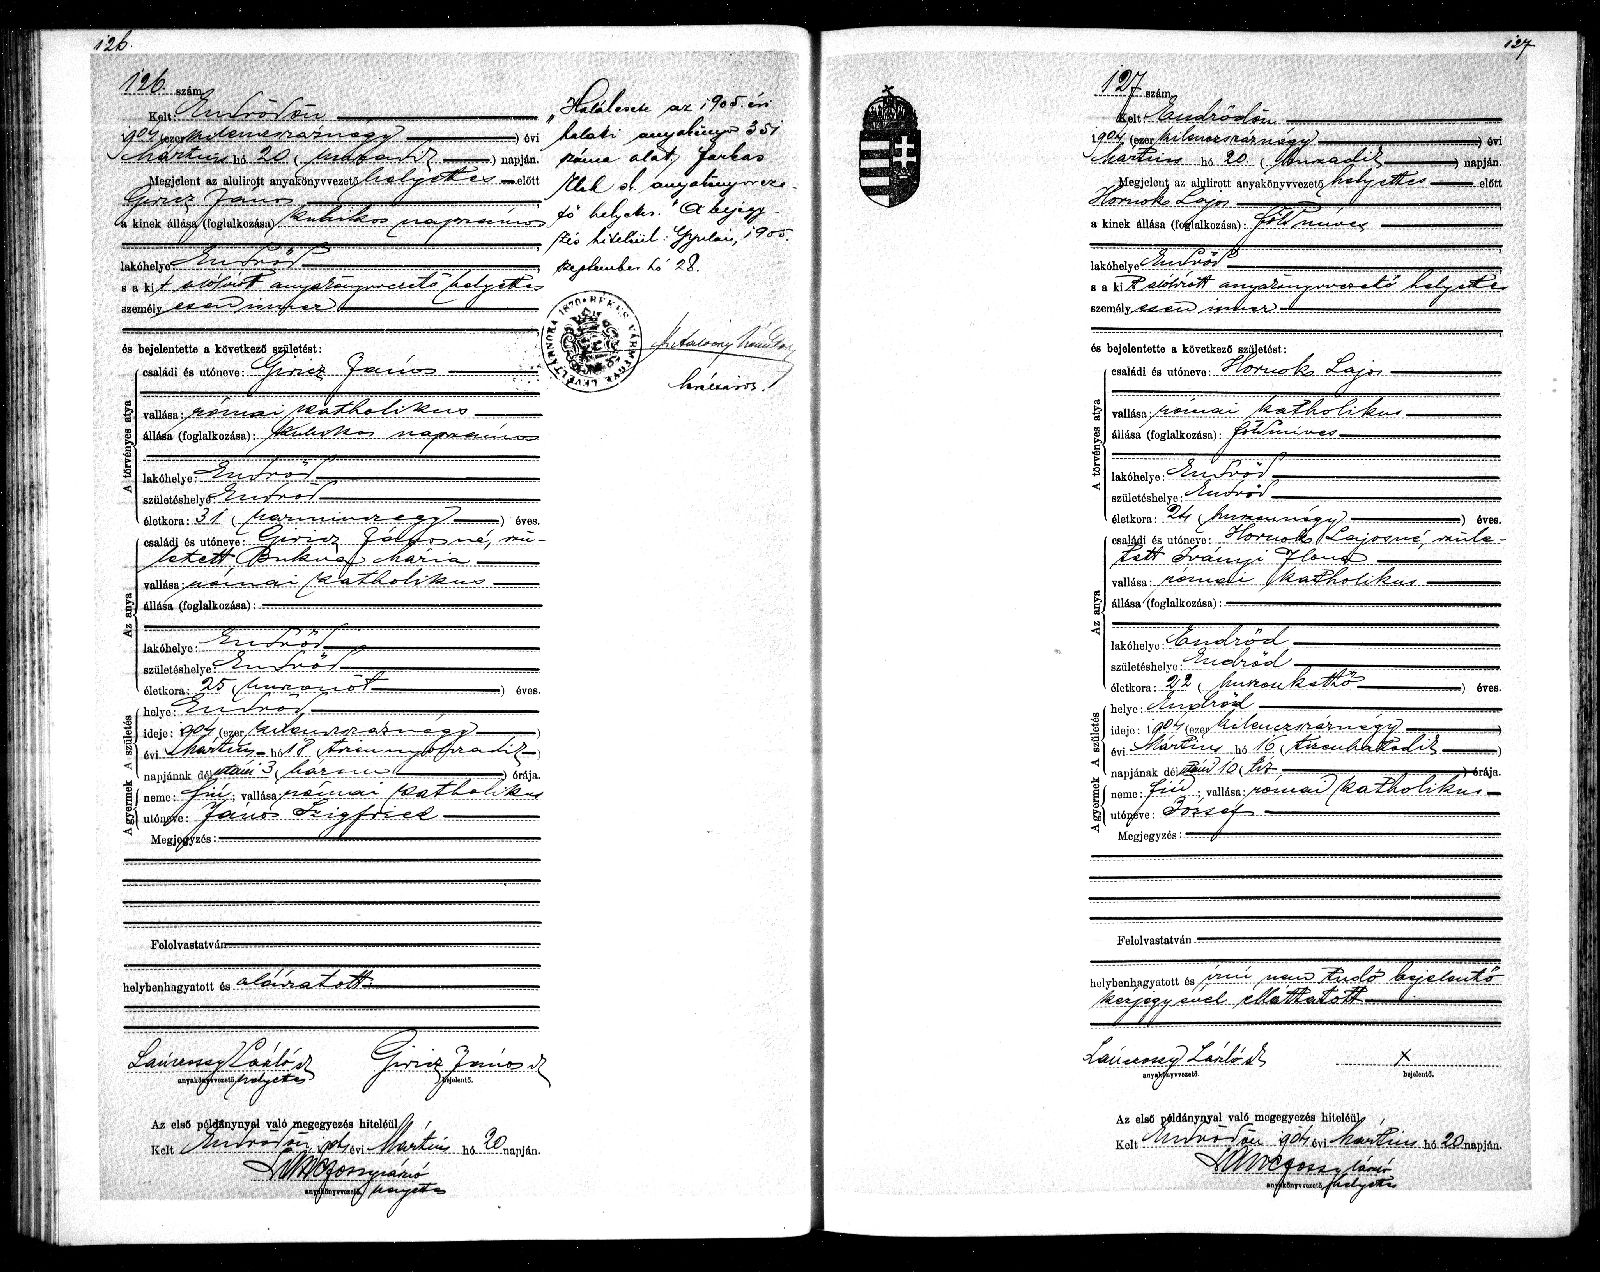 126.
126. szám.
Kelt Endrődön
1904 (ezer kilencszáznégy) évi
Március hó 20 (huszadik) napján.
Megjelent az alulirott anyakönyvvezető helyettes előtt
Giricz János
a kinek állása (foglalkozása) kubikos napszámos
lakóhelye Endrőd
s a kit alólirott anyakönyvvezető helyettes
személyesen ismer
és bejelentette a következő születést:
A törvényes atya
családi és utóneve: Giricz János
vallása: római katholikus
állása (foglalkozása): kubikos napszámos
lakóhelye: Endrőd
születéshelye: Endrőd
életkora: 31 (harminczegy) éves.
Az anya
családi és utóneve: Giricz Jánosné, szü-
letett Bukva Mária
vallása: római katholikus
állása (foglalkozása):
lakóhelye: Endrőd
születéshelye: Endrőd
életkora: 25 (huszonöt) éves.
A születés
helye: Endrőd
ideje: 1904 (ezer kilencszáznégy)
évi Március hó 18 (tizennyolczadik)
napjának délutáni 3 (három) órája.
A gyermek
neme: fiú; vallása: római katholikus
utóneve: János Szigfried
Megjegyzés:
Felolvastatván
helybenhagyatott és aláiratott.
László
anyakönyvvezető helyettes
Giricz János
bejelentő.
Az első példánynyal való megegyezés hiteléül
Kelt Endrődön 904 évi Március hó 20 napján.
anyakönyvvezető helyettes
"Halálesete az 1905. évi
halálozási anyakönyv 351
száma alatt, Farkas
anyakönyvveze-
tő helyettes." A bejegy-
zés hiteléül: Gyulán, 1905.
szeptember hó 28.
BÉKÉS VÁRMEGYE LEVÉLTÁRNOKA 1870
levéltáros.
127
127 szám.
Kelt Endrődön
1904 (ezer kilencszáznégy) évi
Március hó 20 (huszadik) napján.
Megjelent az alulirott anyakönyvvezető helyettes előtt
Hornok Lajos
a kinek állása (foglalkozása): földmíves
lakóhelye Endrőd
s a kit alólirott anyakönyvvezető helyettes
személyesen ismer
és bejelentette a következő születést:
A törvényes atya
családi és utóneve: Hornok Lajos
vallása: római katholikus
állása (foglalkozása): földmíves
lakóhelye: Endrőd
születéshelye: Endrőd
életkora: 24 (huszonnégy) éves.
Az anya
családi és utóneve: Hornok Lajosné, szüle-
tett Iványi Ilona
vallása: római katholikus
állása (foglalkozása):
lakóhelye: Endrőd
születéshelye: Endrőd
életkora: 22 (huszonkettő) éves.
A születés
helye: Endrőd
ideje: 1904 (ezer kilencszáznégy)
évi Március hó 16 (tizenhatodik)
napjának délutáni 10 (tíz) órája.
A gyermek
neme: fiú; vallása: római katholikus
utóneve: József
Megjegyzés:
Felolvastatván
helybenhagyatott és írni nem tudó bejelentő
kézjegyével elláttatott
László
anyakönyvvezető.
x
bejelentő.
Az első példánynyal való megegyezés hiteléül
Kelt Endrődön 904 évi Március hó 20 napján.
László
anyakönyvvezető helyettes